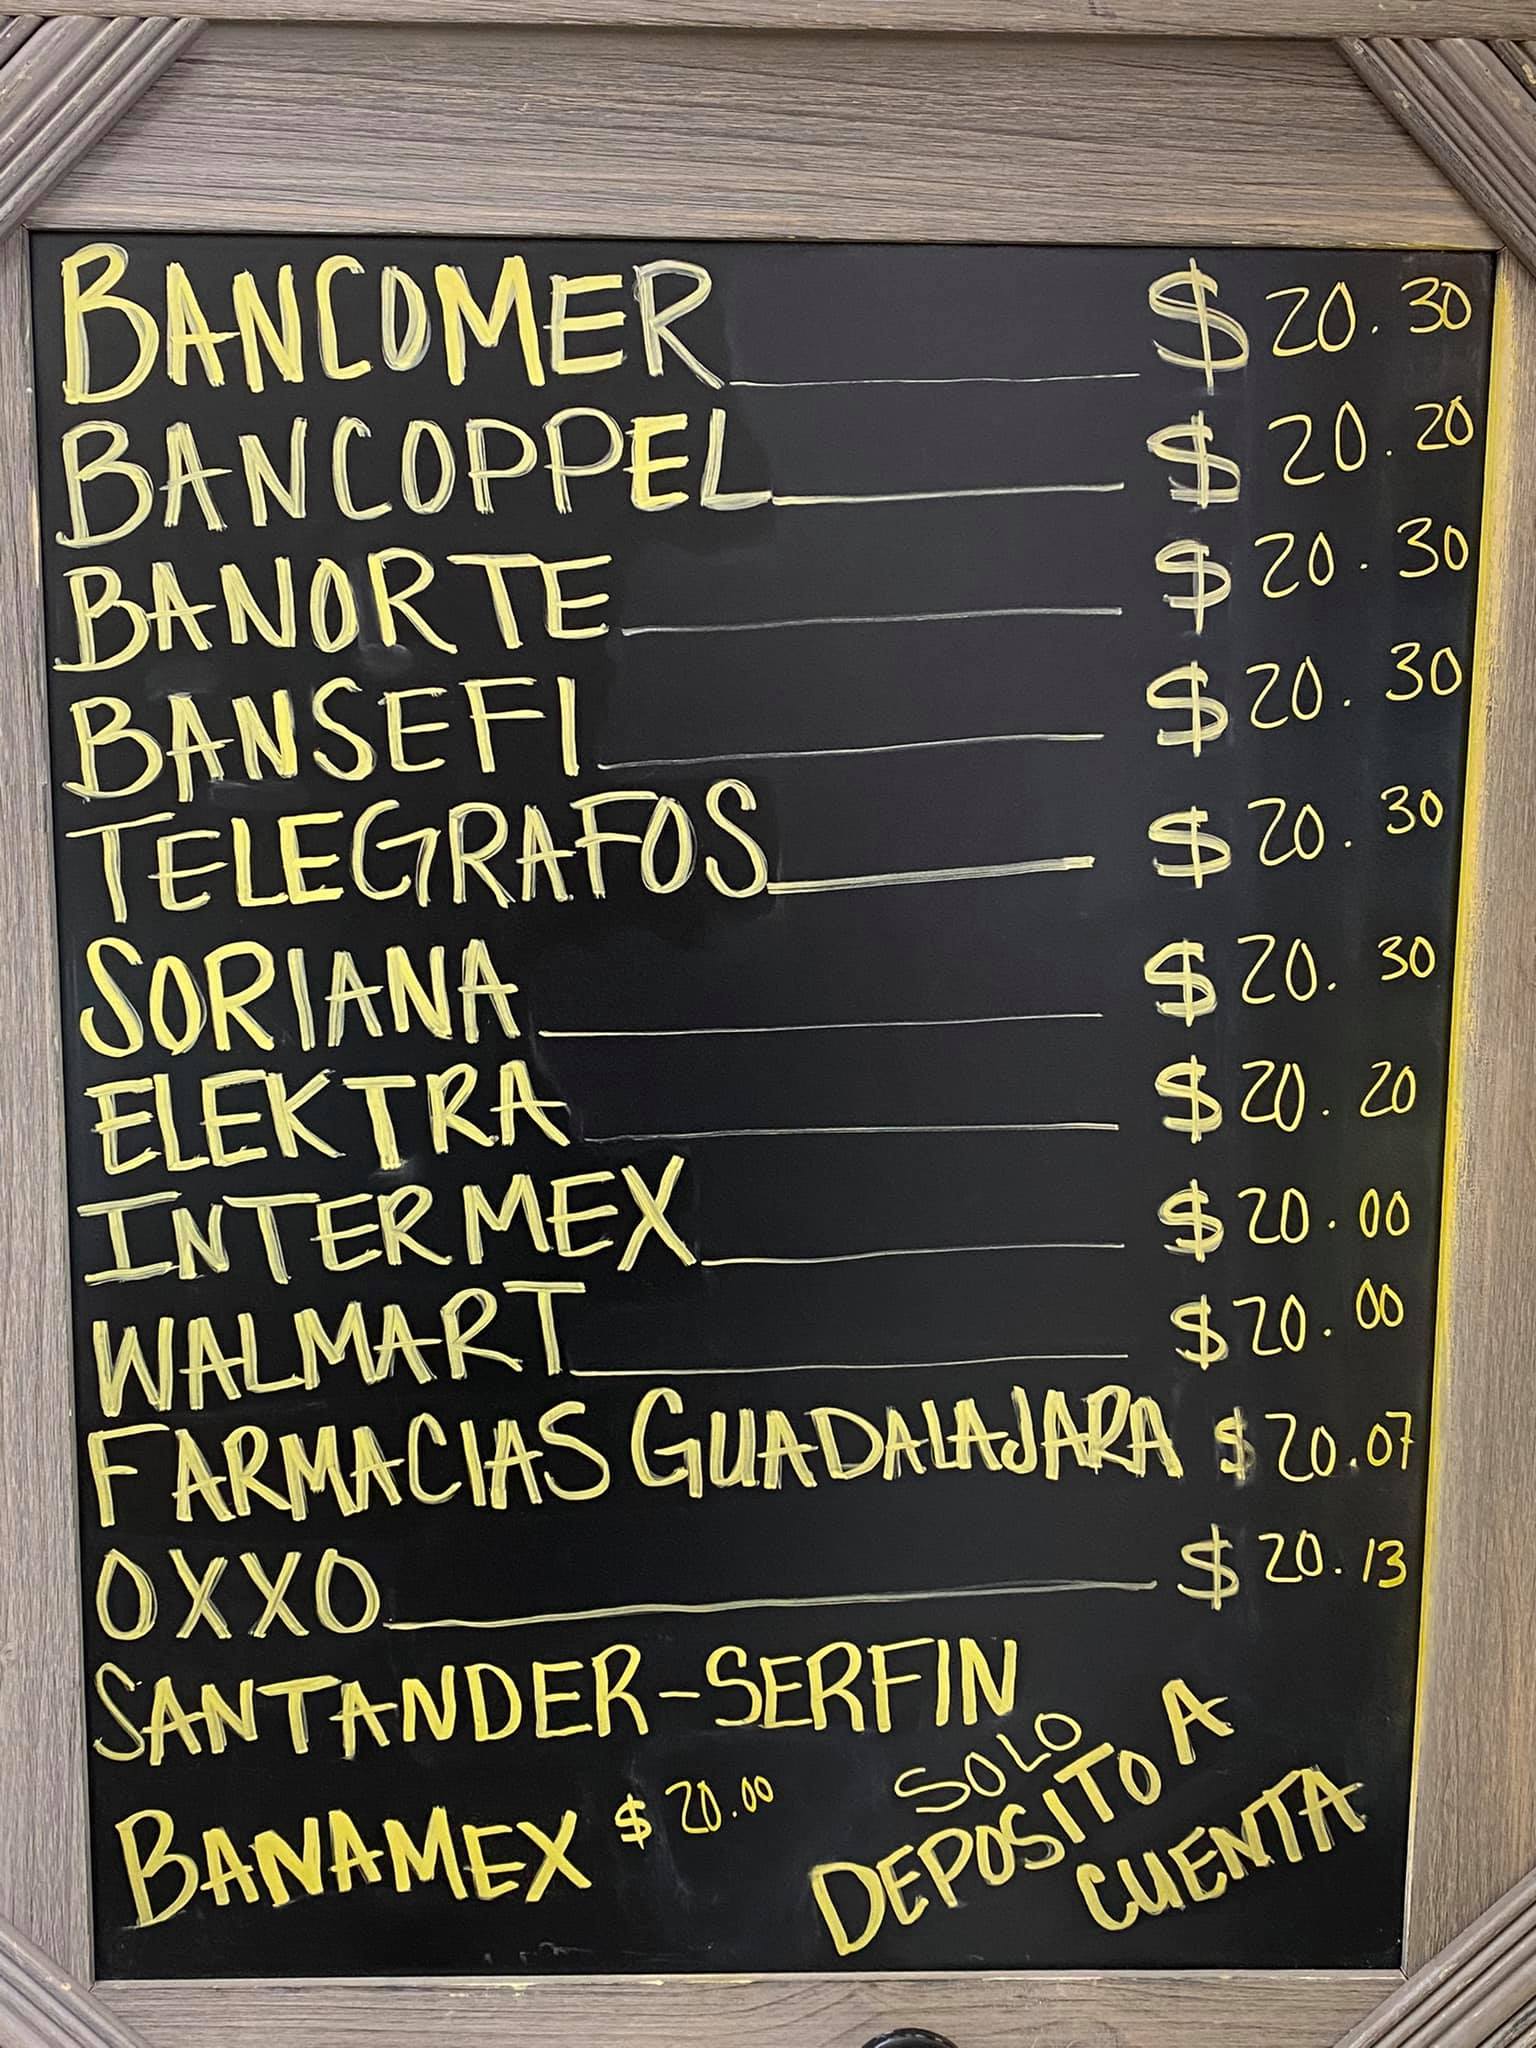 BANCOMER $20.30
BANCOPPEL $20.20
BANORTE $20.30
BANSEFI $20.30
TELEGRAFOS $20.30
SORIANA $20.30
ELEKTRA $20.20
INTERMEX $20.00
WALMART $20.00
FARMACIAS GUADALAJARA $20.07
OXXO $20.13
SANTANDER-SERFIN
BANAMEX $20.00
SOLO
DEPOSITO A
CUENTA